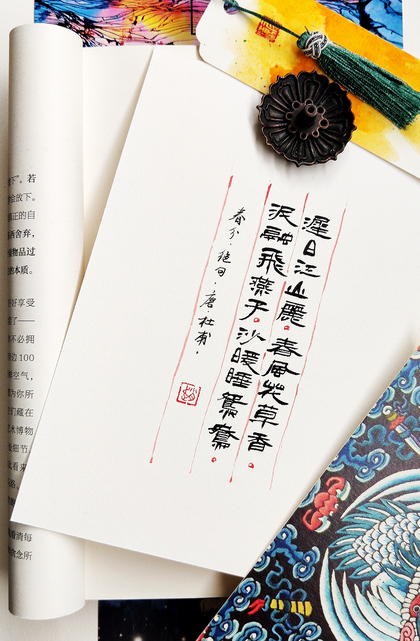 遲日江山麗。春風花草香
泥融飛燕子。沙暖睡鴛鴦。
春分．绝句．唐．杜甫．
下”。若
会放下。
正的自
舍弃，
物品过
的本质。
好享受
了——
不必拥
边 100
空气，
为你所
们藏在
术博物
细节
看来
看清每
念所